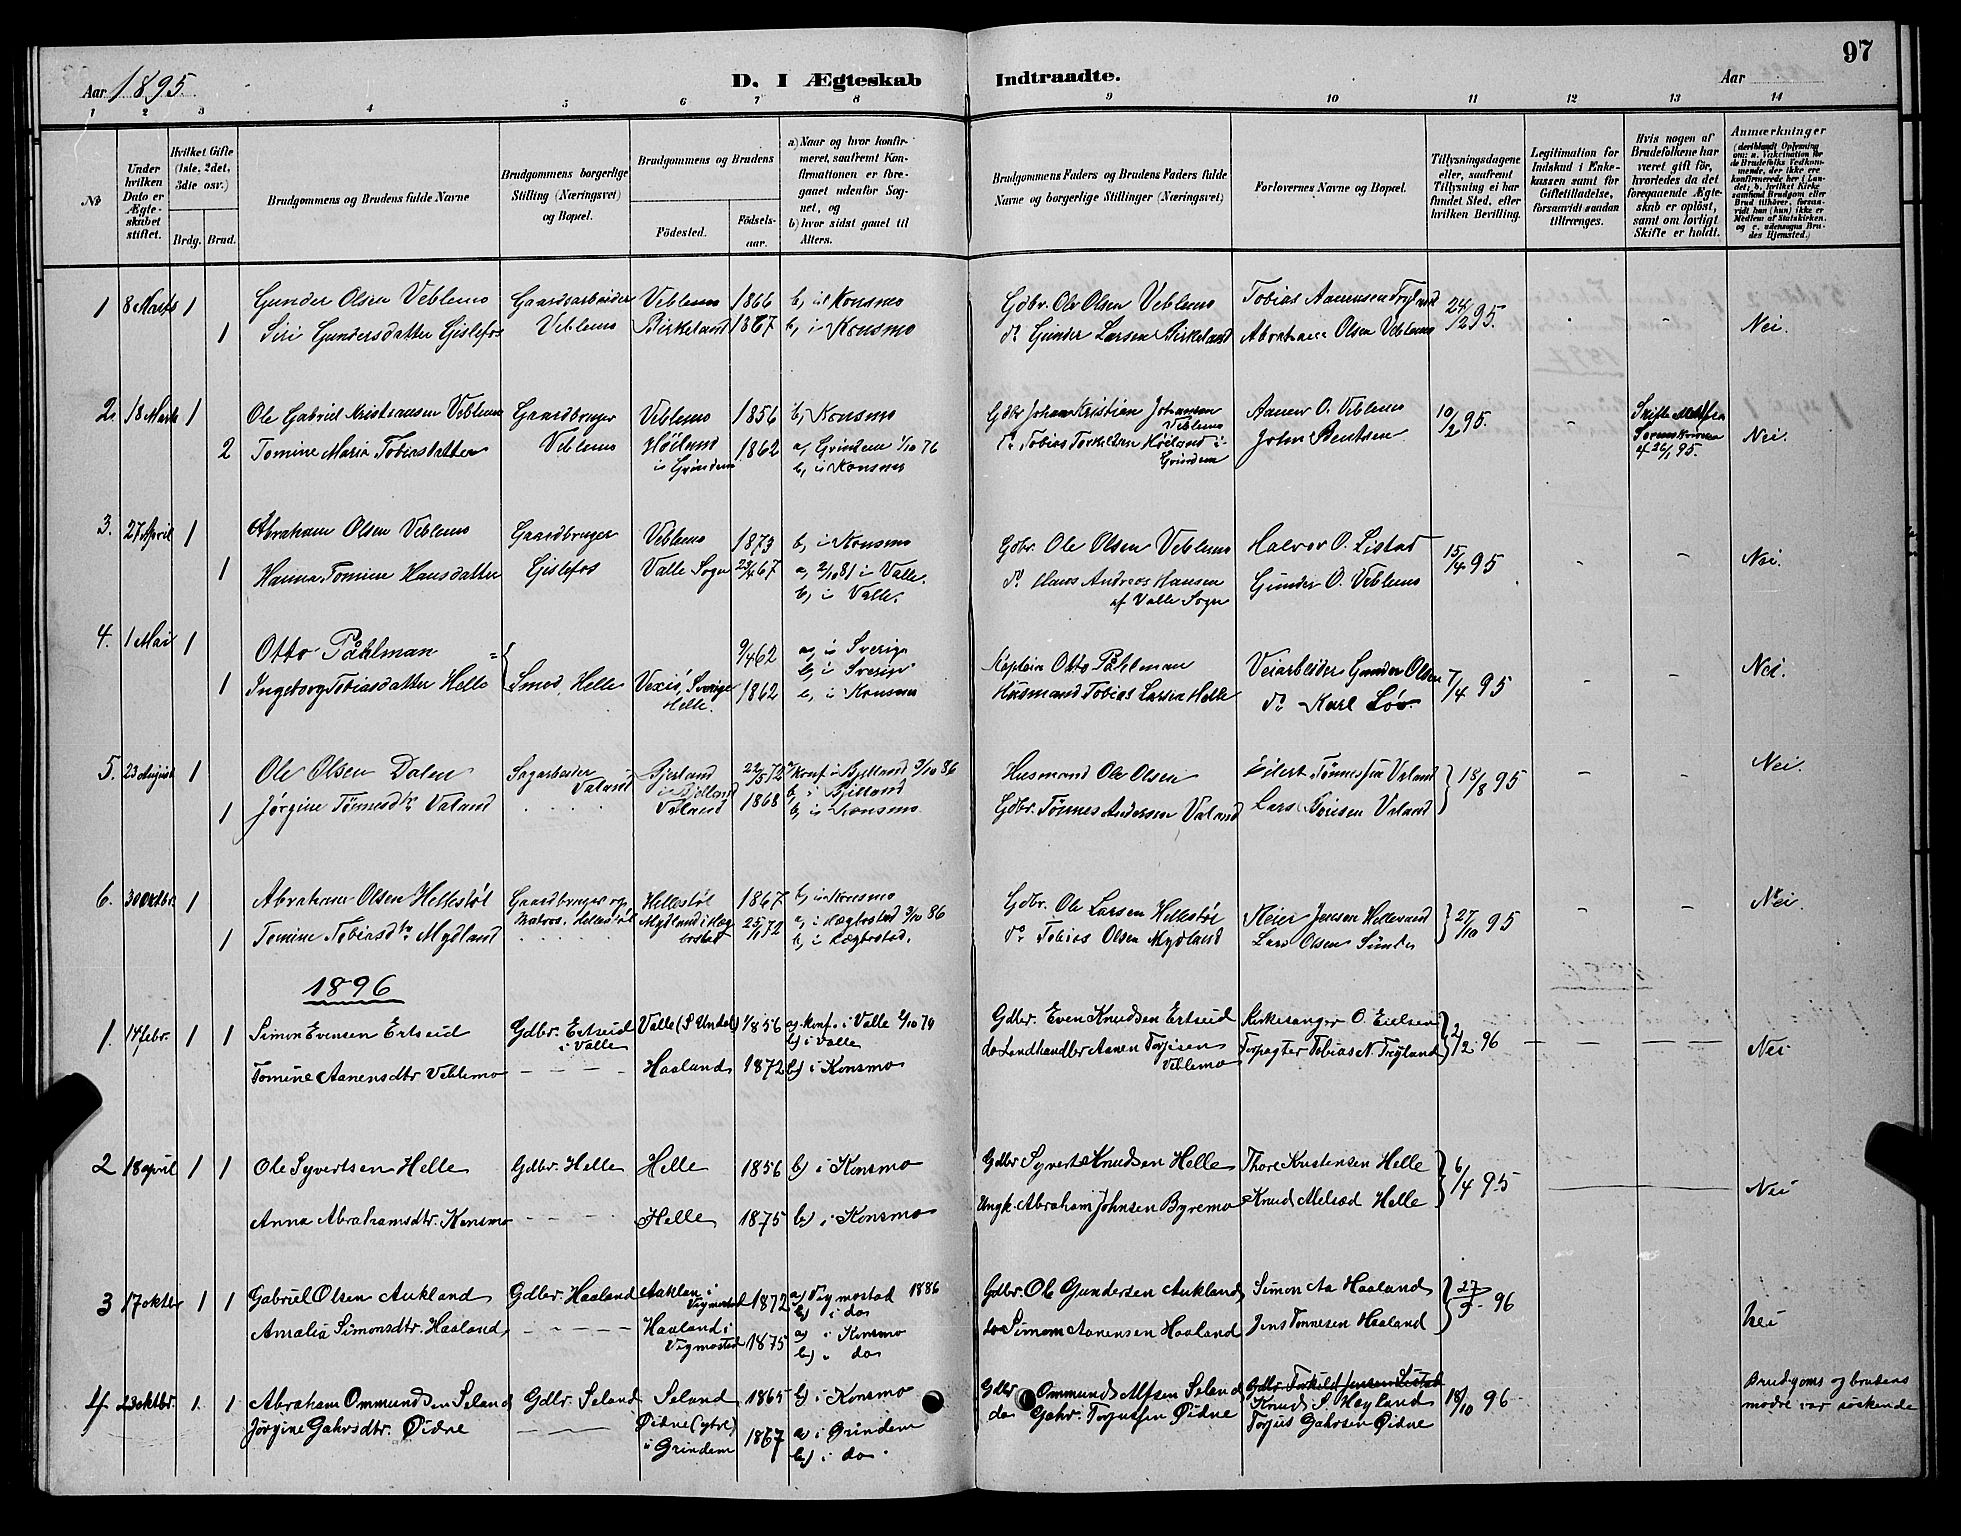 97
Aar 1895. D. I Ægteskab Indtraadte. Aar
1 2 3 4 5 6 7 8 9 10 11 12 13 14
No
Under hvilken Dato er Ægteskabet stiftet.
Hvilket Gifte (1ste, 2det, 3die osv.)
Brdg. Brud.
Brudgommens og Brudens fulde Navne
Brudgommens borgerlige Stilling (Næringsvei) og Bopæl.
Brudgommens og Brudens
Födested. Födsels-aar.
a) Naar og hvor konfirmeret, saafremt Konfirmationen er foregaaet udenfor Sognet, og
b) hvor sidst gaaet til Alters.
Brudgommens Faders og Brudens Faders fulde Navne og borgerlige Stillinger (Næringsvei)
Forlovernes Navne og Bopæl.
Tillysningsdagene eller, saafremt Tillysning ei har fundet Sted, efter hvilken Bevilling.
Legitimation for Indskud i Enkekassen samt for Giftetilladelse, forsaavidt saadan tiltrænges.
Hvis nogen af Brudefolkene har været gift för, hvorledes da det foregaaende Ægteskab er oplöst, samt om lovligt Skifte er holdt.
Anmærkninger
1 8 Marts 1 Gunder Olsen Veblemo Gaardsarbeider Veblemo 1866 b, i Konsmo Gdbr. Ole Olsen Veblemo Tobias Aanensen Tryland 24/2 95. Nei.
1 Siri Gundersdatter Gislefos Veblemo Birkeland 1867 b, i Konsmo do Gunder Larsen Birkeland Abraham Olsen Veblemo
2. 18 Marts 1 Ole Gabriel Kristiansen Veblemo Gaardbruger Veblemo 1856 b, Konsmo Gdbr Johan Kristian Johansen Veblemo Aanen O. Veblemo 10/2 95. Nei.
2 Tomine Maria Tobiasdatter Veblemo Höiland i Grindem 1862 a, Grindem 1/10 76 b, i Konsmo do Tobias Torkildsen Höiland i Grindem John Bentsen
26/1 95.
3. 27 April 1 Abraham Olsen Veblemo Gaardbruger Veblemo 1873 b, i Konsmo Gdbr. Ole Olsen Veblemo Halvor O. Listad 15/4 95 Nei.
1 Hanna Tomine Hansdatter Gislefos Valle Sogn 23/4 67 a, 2/10 81 i Valle. b, i Valle. do Hans Andreas Hansen af Valle Sogn Gunder O. Veblemo
4. 1 Mai 1 Otto Påhlman 9/4 62 a, i Sverige b, i Sverige Kaptein Otto Påhlman Veiarbeider Gunder Olsen 7/4 95 Nei.
1 Ingeborg Tobiasdatter Helle Smed, Helle Vexiö, Sverige Helle. 1862 b, i Konsmo Husmand Tobias Larsen Helle do Karl Löv
5. 23 August 1 Ole Olsen Dalen Sagarbeider Valand Bjerland i Bjelland 22/5 72 a, Konf. i Bjelland 3/10 86 b, i Bjelland Husmand Ole Olsen Eilert Tönnesen Valand 18/8 95 Nei.
1 Jörgine Tönnesdtr Valand Valand 1868 b, i Konsmo Gdbr. Tönnes Andersen Valand Lars Valand
6. 30 Oktbr. 1 Abraham Olsen Hellestöl Gaardbruger og Matros, Hellestöl Hellestöl 1867 b, i Konsmo Gdbr. Ole Larsen Hellestöl Jensen 27/10 95 Nei.
1 Tomine Tobiasdtr Mydland Mydland i Hægbostad 25/1 72 a, i Hægbostad 3/10 86 b, i Hægbostad. do Tobias Olsen Mydland Lars Olsen
1896
1 14 febr. 1 1 Simon Evensen Ertseid Gdbr. Ertseid i Valle Valle (S Undal) 1/8 56 a, konf. i Valle 2/10 70 b) i Valle Gdbr. Even Knudsen Ertseid Kirkesanger O. Eielsen 2/2 96 Nei
Tomine Aanensdtr Veblemo Haaland 1872 b) i Konsmo do Landhandler Aanen Terjesen Veblemo Forpagter Tobias N. Tryland
2 18 april 1 1 Ole Syvertsen Helle Gdbr. Helle Helle 1856 b) i Konsmo Gdbr Syvert Knudsen Helle Thore Kristensen Helle 6/4 95 Nei
Anna Abrahamsdtr. Konsmo Helle 1875 b) i Konsmo Ungk. Abraham Johnsen Byremo Knud Helle
3 17 oktbr 1 1 Gabriel Olsen Aukland Gdbr. Haaland Auklan i Vigmostad 1872 a) Vigmostad 1886 b) i do Gdbr. Ole Gundersen Aukland Simon Aa Haaland 27/9 96 Nei
Amalia Simonsdtr. Haaland Haaland i Vigmostad 1875 a) i Konsmo b) i do do Simon Aanensen Haaland Jens Tönnesen Haaland
4 23 oktbr. 1. 1 Abraham Ommundsen Seland Gdbr. Seland Seland 1865 b) i Konsmo Gdbr Ommund Alfsen Seland Gdbr Torkild Jensen Listad Knud S. Höyland 18/10 96 Brudgoms og brudens mødre var søskende
Jörgine Gahrsdtr. Øidne Øidne (ytre) i Grindem 1867 a) i Grindem b) i do. do Gahr Torjussen Øidne Torjus Gahrsen Øidne